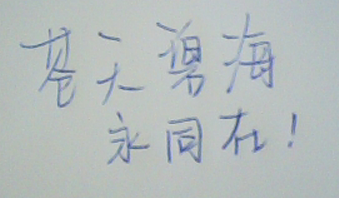 苍天碧海
永同在!